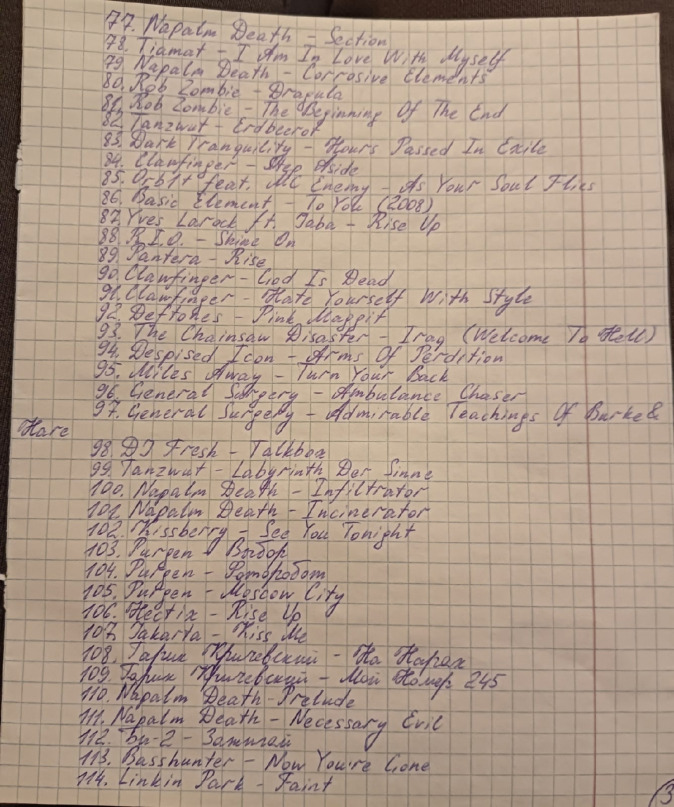 77. Napalm Death - Section
78. Tiamat - I Am In Love With Myself
79. Napalm Death - Corrosive Elements
80. Rob Zombie - Dragula
81. Rob Zombie - The Beginning Of The End
82. Tanzwut - Erdbeerot
83. Dark Tranquility - Hours Passed In Exile
84. Clawfinger - Step Aside
85. Orb1t feat. MC Enemy - As Your Soul Flies
86. Basic Element - To You (2008)
87. Yves Larock ft. Jaba - Rise Up
88. R.I.O. - Shine On
89. Pantera - Rise
90. Clawfinger - God Is Dead
91. Clawfinger - Hate Yourself With Style
92. Deftones - Pink Maggit
93. The Chainsaw Disaster - Iraq (Welcome To Hell)
94. Despised Icon - Arms Of Perdition
95. Miles Away - Turn Your Back
96. General Surgery - Ambulance Chaser
97. General Surgery - Admirable Teachings Of Burke &
Hare
98. DJ Fresh - Talkbox
99. Tanzwut - Labyrinth Der Sinne
100. Napalm Death - Infiltrator
101. Napalm Death - Incinerator
102. Kissberry - See You Tonight
103. Purgen - Выбор
104. Purgen -
105. Purgen - Moscow City
106. Hectix - Rise Up
107. Jakarta - Kiss Me
108. Гарик Кричевский - На Нарах
109. Гарик Кричевский - Мой Номер 245
110. Napalm Death - Prelude
111. Napalm Death - Necessary Evil
112. Би-2 -
113. Basshunter - Now You're Gone
114. Linkin Park - Faint
3